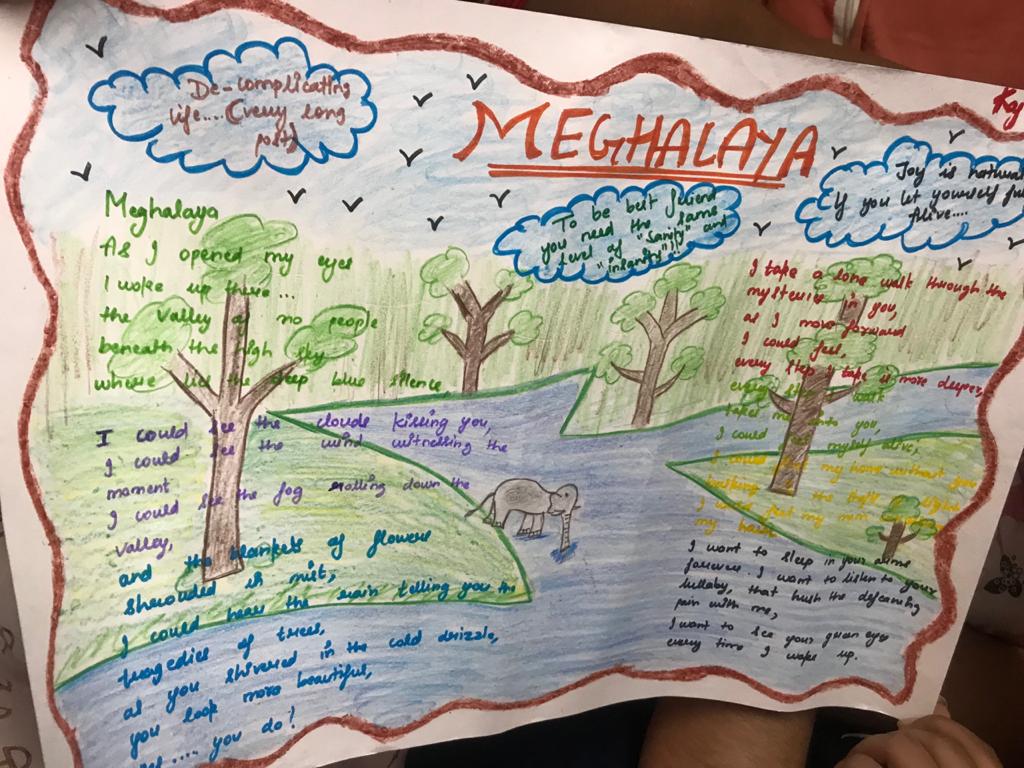 De-complicating
life.... (very long
post)
MEGHALAYA
Ky
To be best friend
you need the same
level of "Sanity" and
"insanity".
Joy is natural
If you let yourself
Alive....
Meghalaya
As I opened my eyes
I woke up there...
the valley of no people
beneath the high sky
where lied the deep blue silence,
I could see the clouds kissing you,
I could see the wind witnessing the
moment
I could see the fog rolling down the
valley,
and the blankets of flowers
shrouded in mist,
I could hear the rain telling you the
tragedies of trees,
as you shivered in the cold drizzle,
you look more beautiful,
.... you do!
I take a long walk through the
mysteries in you,
as I move forward
I could feel,
every step I take is more deeper,
every walk
take me into you,
I could myself alive,
my home without
the
I could feel my
my
I want to sleep in your arms
forever. I want to listen to your
lullaby, that hush the
pain with me,
I want to see your green eyes
every time I woke up.